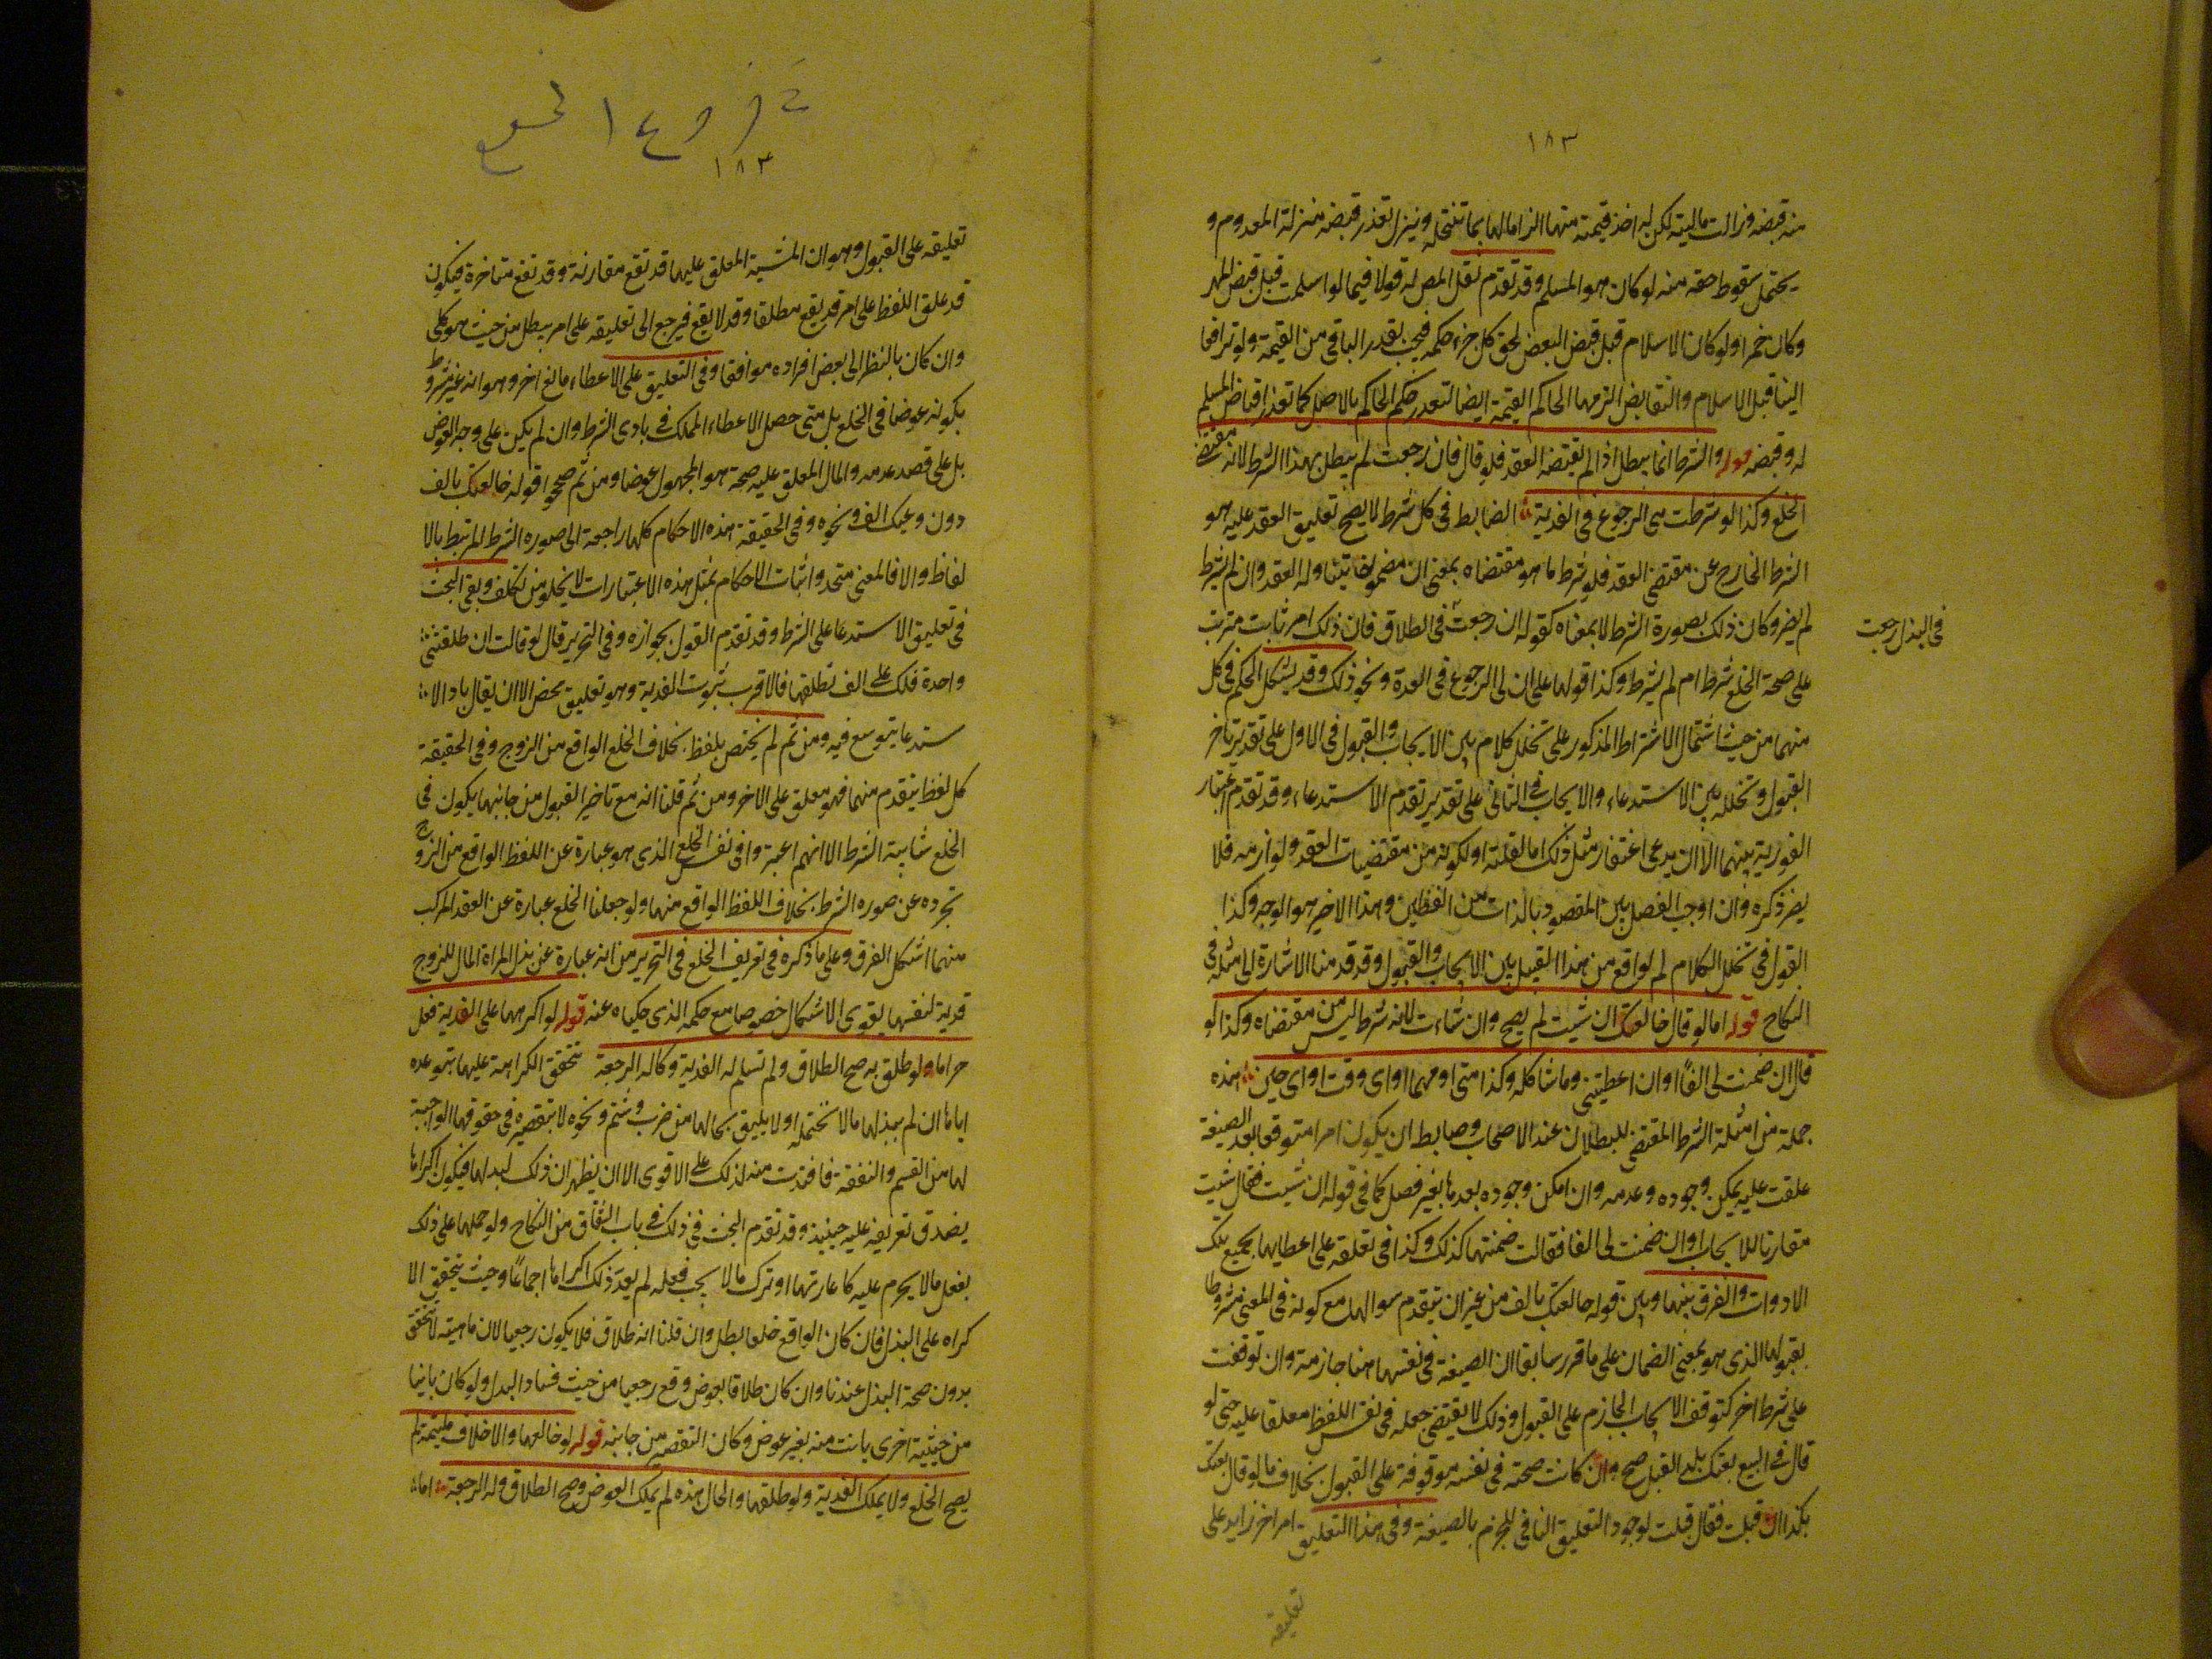 ١٨٣
منه قبضه وزالت ماليته لكن له اخذ قيمته منها الزاما لها بما تنتحله وينزل تعذر قبضه منزلة المعدوم و
يحتمل سقوط حقه منه لو كان هو المسلم وقد تقدم نقل المص له قولا فيما لو اسلمت قبل قبض المهر
وكان خمرا ولو كان الاسلام قبل قبض البعض لحق كل جزء حكمه فيجب بقدر الباقى من القيمة ولو ترافعا
الينا قبل الاسلام والتقابض الزمها الحاكم القيمة ايضا لتعذر حكم الحاكم بالاصل كما تعذر اقباض المسلم
له وقبضه قوله والشرط انما يبطل اذا لم يقتضه العقد فلو قال فان رجعت لم يبطل بهذا الشرط لانه مقتضى
الخلع وكذا لو شرطت هى الرجوع فى الفدية الضابط فى كل شرط لا يصح تعليق العقد عليه هو
الشرط الخارج عن مقتضى العقد فلو شرط ما هو مقتضاه بمعنى ان مضمونه يتناوله العقد وان لم يشرط
لم يضر وكان ذلك بصورة الشرط لا بمعناه كقوله ان رجعت فى الطلاق فان ذلك امر ثابت مترتب
فى البذل رجعت
على صحة الخلع شرط ام لم يشرط وكذا قولها على ان لى الرجوع فى العدة ونحو ذلك وقد يشكل الحكم فى كل
منهما من حيث اشتمال الاشتراط المذكور على تخلل كلام بين الايجاب والقبول فى الاول على تقدير تاخر
القبول وتخلله بين الاستدعاء والايجاب فى الثانى على تقدير تقدم الاستدعاء وقد تقدم اعتبار
الفورية بينهما الا ان يدعى اغتفار مثل ذلك اما لقلته او لكونه من مقتضيات العقد ولوازمه فلا
يضر ذكره وان اوجب الفصل بين المقصود بالذات من اللفظين وهذا الاخير هو الوجه وكذا
القول فى تخلل الكلام لم لواقع من هذا القبيل بين الايجاب والقبول وقد قدمنا الاشارة الى مثله فى
النكاح قوله اما لو قال خالعتك ان شئت لم يصح وان شاءت لانه شرط ليس من مقتضاه وكذا لو
قال ان ضمنت لى الفًا او ان اعطيتنى وما شاكله وكذا متى او مهما او اى وقت او اى حين هذه
جملة من امثلة الشرط المقتضى للبطلان عند الاصحاب وضابطه ان يكون امرا متوقعا بعد الصيغة
علقت عليه يمكن وجوده وعدمه وان امكن وجوده بعدها بغير فصل كما فى قوله ان شئت فقال شئت
مقارنا للايجاب او ان ضمنت لى الفا فقالت ضمنتها كذلك وكذا فى تعلقه على اعطايها بجميع تلك
الادوات والفرق بينها وبين قوله خالعتك بالف من غير ان يتقدم سوالها مع كونه فى المعنى مشروطا
بقبولها الذى هو بمعنى الضمان على ما قرر سابقا ان الصيغة فى نفسها هنا جازمة وان توقفت
على شرط اخر كتوقف الايجاب الجازم على القبول وذلك لا يقتضى جعله فى نفس اللفظ معلقا عليه حتى لو
قال فى البيع بعتك بكذا فقبل صح وان كانت صحته فى نفسه موقوفة على القبول بخلاف ما لو قال بعتك
بكذا ان قبلت فقال قبلت لوجود التعليق المنافى للجزم بالصيغة وفى هذا التعليق امر اخر زايد على
تعليقه
فروع الخلع
١٨٣
تعليقه على القبول وهو ان المشية المعلق عليها قد تقع مقارنة وقد تقع متاخرة فيكون
قد علق اللفظ على امر قد يقع مطلقا وقد لا يقع فيرجع الى تعليقه على امر يبطل من حيث هو كلى
وان كان بالنظر الى بعض افراده موافقا وفى التعليق على الاعطاء مانع اخر وهو انه غير مشروط
بكونه عوضا فى الخلع بل متى حصل الاعطاء المملك فى بادى الشرط وان لم يكن على وجه العوض
بل على قصد عدمه والمال المعلق عليه صحته هو المجهول عوضا ومن ثم صححوا قوله خالعتك بالف
دون وعليك الف ونحوه وفى الحقيقة هذه الاحكام كلها راجعة الى صوره الشرط المرتبط بالا
لفاظ والا فالمعنى متحد واثبات الاحكام بمثل هذه الاعتبارات لا يخلو من تكلف وبقى البحث
فى تعليق الاستدعا على الشرط وقد تقدم القول بجوازه وفى التحرير قال لو قالت ان طلقتنى
واحدة فلك على الف فطلقها فالاقرب ثبوت الفدية وهو تعليق محض الا ان يقال بان الا
ستدعا يتوسع فيه ومن ثم لم يختص بلفظ بخلاف الخلع الواقع من الزوج وفى الحقيقة
كل لفظ يتقدم منهما فهو معلق على الاخر ومن ثم قلنا انه مع تاخير القبول من جانبها يكون فى
الخلع شايبة الشرط الا انهم اعتبروا فى نفس الخلع الذى هو عبارة عن اللفظ الواقع من الزوج
تجرده عن صوره الشرط بخلاف اللفظ الواقع منها ولو جعلنا الخلع عبارة عن العقد المركب
منهما اشكل الفرق وعلى ما ذكره فى تعريف الخلع فى التحرير من انه عبارة عن بذل المراة المال للزوج
فدية لنفسها يقوى الاشكال خصوصا مع حكمه الذى حكيناه عنه قوله لو اكرهها على الفدية فعل
حراما ولو طلق به صح الطلاق ولم تسلم له الفدية وكان له الرجعة تتحقق الكراهة عليها بتوعده
اياها ان لم يبذلها مالا تحتمله او لا يليق بحالها من ضرب وشتم ونحوه لا بتقصيره فى حقوقها الواجبة
لها من القسم والنفقة فافتدت منه لذلك على الاقوى الا ان يظهر ان ذلك لبذلها فيكون اكراها
يصدق تعريفه عليه حينئذ وقد تقدم البحث فى ذلك فى باب الشقاق من النكاح ولو حملها على ذلك
بفعل ما لا يحرم عليه كاغارتها او ترك ما لا يجب فعله لم يعد ذلك اكراها اجماعًا وحيث يتحقق الا
كراه على البذل فان كان الواقع خلعا بطل وان قلنا انه طلاق فلا يكون رجعيا لان ماهيته لا تتحقق
بدون صحة البذل عندنا وان كان طلاقا بعوض وقع رجعيا من حيث فساد البدل ولو كان باينا
من حيثية اخرى بانت منه بغير عوض وكان التقصير من جانبه قوله لو خالعها والاخلاق ملتئمة لم
يصح الخلع ولا يملك الفدية ولو طلقها والحال هذه لم يملك العوض وصح الطلاق وله الرجعة اما